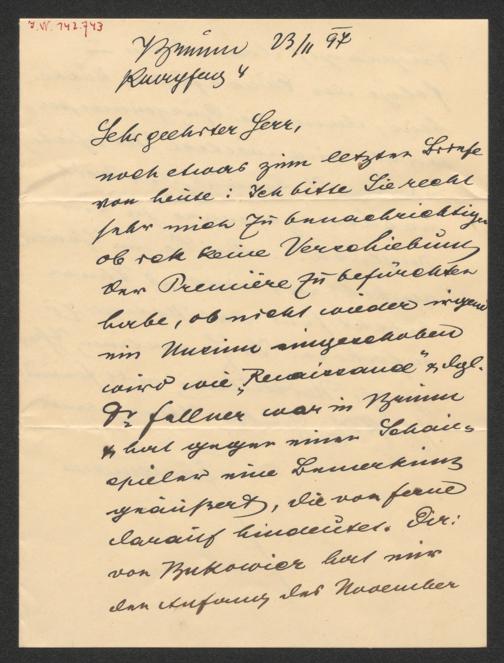 I.N. 142.743
Brünn 23/II 97
Sehr geehrter Herr,
noch etwas zum letzten Briefe
von heute: Ich bitte Sie recht
sehr mich zu benachrichtigen
ob ich keine Verschiebung
der Première zu befürchten
habe, ob nicht wieder irgend
ein Unsinn eingeschoben
wird wie „Renaissance" & dgl.
Dr Fellner war in Brünn
& hat gegen einen Schau=
spieler eine Bemerkung
geäußert, die von ferne
darauf hindeutet. Dir:
von Bukovics hat mir
den Anfang des November